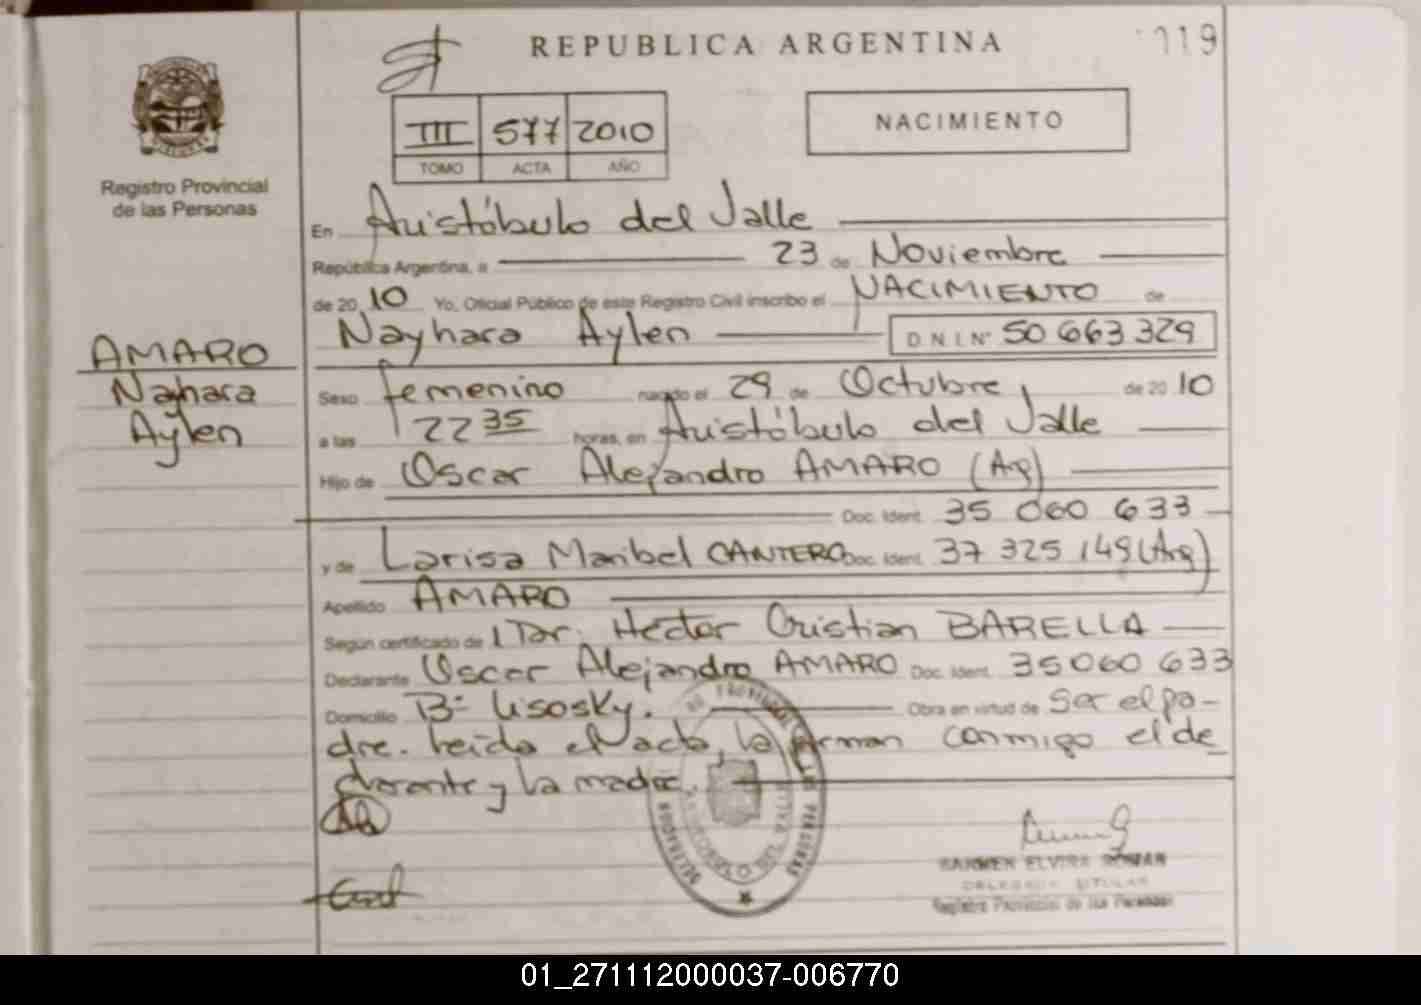 REPUBLICA ARGENTINA
119
III 577 2010
TOMO ACTA AÑO
NACIMIENTO
Registro Provincial
de las Personas
AMARO
Nayhara
Aylen
En Aristóbulo del Valle
República Argentina, a 23 de Noviembre
de 2010 Yo, Oficial Público de este Registro Civil inscribo el NACIMIENTO de
Nayhara Aylen D.N.I. Nº 50 663 329
Sexo femenino nacido el 29 de Octubre de 2010
a las 22 35 horas, en Aristóbulo del Valle
Hijo de Oscar Alejandro AMARO (Arg)
Doc. Ident. 35 060 633
y de Larisa Maribel CANTERO Doc. Ident. 37 325 149 (Arg)
Apellido AMARO
Según certificado de Dr. Héctor Cristian BARELLA
Declarante Oscar Alejandro AMARO Doc. Ident. 35060 633
Domicilio Bº Lisosky. Obra en virtud de Ser el pa-
dre. Leída el acta, la firman conmigo el de
clarante y la madre.
CARMEN ELVIRA ROMAN
DELEGADA TITULAR
Registro Provincial de las Personas
01_271112000037-006770